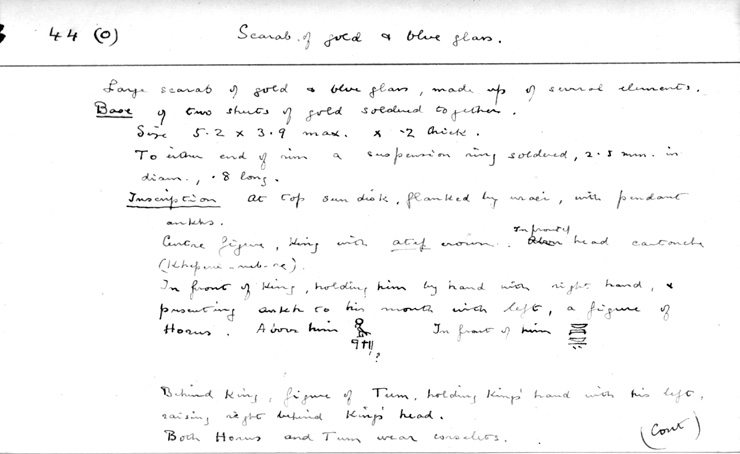 44 (O) Scarab of gold & blue glass.
Large scarab of gold & blue glass, made up of several elements.
Base of two sheets of gold soldered together.
Size 5.2 x 3.9 max. x .2 thick.
To either end of rim a suspension ring soldered, 2.5 mm. in
diam., .8 long.
Inscription At top sun disk, flanked by uraei, with pendant
ankhs.
In front of
Centre figure, King with atef crown. head cartouche
(Kheperu-neb-re).
In front of King, holding him by hand with right hand, &
presenting ankh to his mouth with left, a figure of
Horus. Above him In front of him
?
Behind King, figure of Tum, holding King's hand with his left,
raising right behind King's head.
Both Horus and Tum wear corselets.
(Cont)